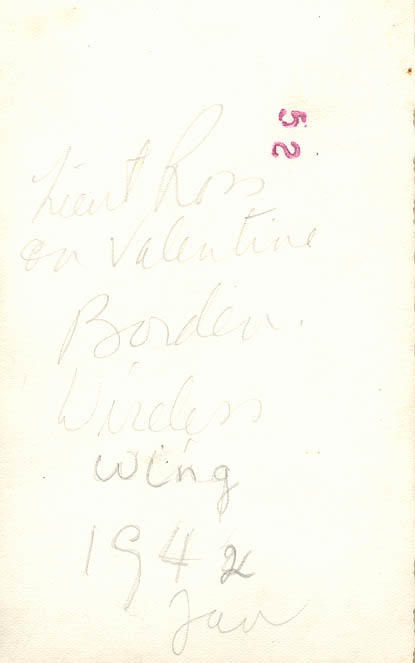 52
Lieut Ross
on Valentine
Borden.
Wireless
wing
1942
Jan